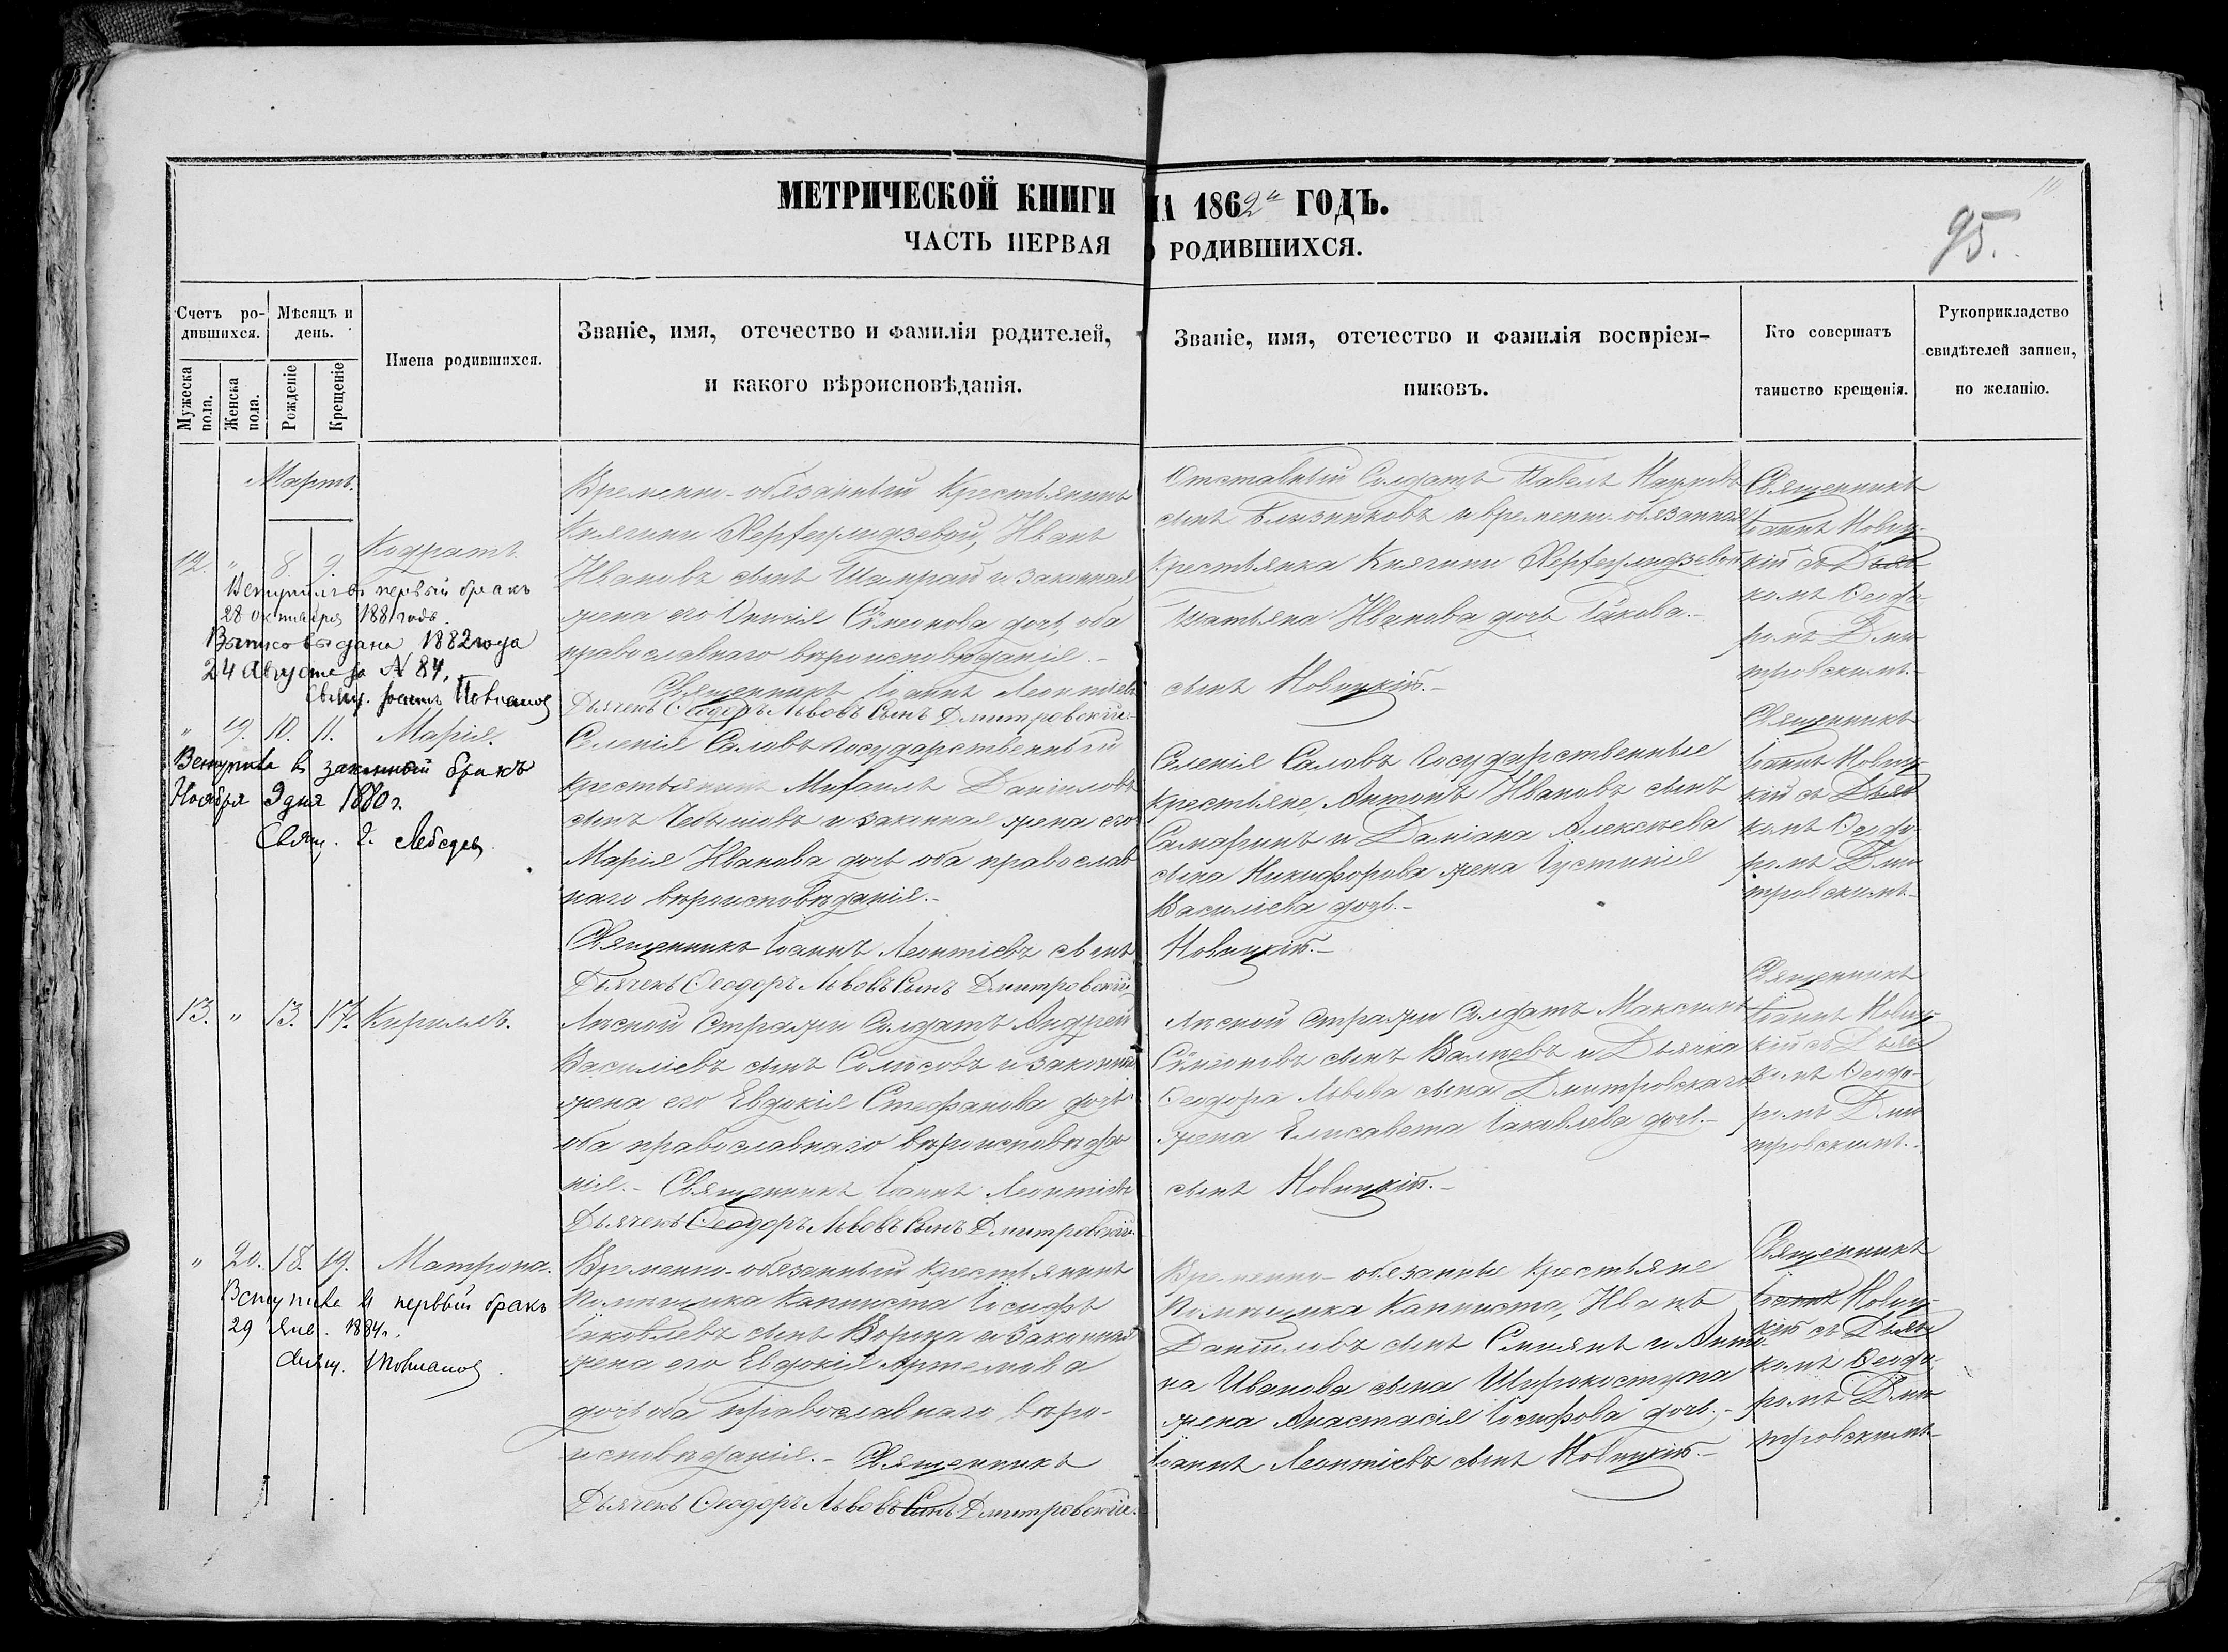 МЕТРИЧЕСКОЙ КНИГИ НА 1862й ГОДЪ.
ЧАСТЬ ПЕРВАЯ О РОДИВШИХСЯ.
95.
Счетъ родившихся.
Мужеска пола.
Женска пола.
Мѣсяцъ и день.
Рожденіе
Крещеніе
Имена родившихся.
Званіе, имя, отечество и фамилія родителей,
и какого вѣроисповѣданія.
Званіе, имя, отечество и фамилія воспріем-
никовъ.
Кто совершатъ
таинство крещенія.
Рукоприкладство
свидѣтелей записи,
по желанію.
Мартъ.
12. " 8 9 Кодратъ
Вступилъ въ первый бракъ
28 октября 1881 года.
Выпись выдана 1882 года
24 Августа за N 84,
Свящ. Іоаннъ
Временно-обязанный Крестьянинъ
Княгини Херхеулидзевой, Иванъ
Ивановъ сынъ Шамрай и законная
жена его Симеонова дочь, оба
православнаго вѣроисповѣданія.-
Священникъ Іоаннъ Леонтіевъ
Дьячекъ Ѳеодоръ Львовъ Сынъ Дмитровскій.
Отставный Солдатъ Павелъ
сынъ Близниковъ и временно-обязанная
Крестьянка Княгини Херхеулидзевой
Татьяна Иванова дочь
сынъ Новицкій.-
Священникъ
Іоаннъ Новиц-
кій съ Дьяч
комъ Ѳеодо-
ромъ Дми
тровскимъ.-
" 19. 10. 11. Марія.
Вступила въ законный бракъ
Ноября 9 дня 1880 г.
Свящ. І. Лебедев
Селенія Саловъ Государственный
крестьянинъ Михаилъ Даніиловъ
сынъ и законная жена его
Марія Иванова дочь оба православ
наго вѣроисповѣданія.-
Священникъ Іоаннъ Леонтіевъ сынъ
Дьячекъ Ѳеодоръ Львовъ Сынъ Дмитровскій
Селенія Саловъ Государственные
Крестьяне, Антонъ Ивановъ сынъ
Самаринъ и Даміана Алексѣева
сына Никифорова жена Іустинія
Василіева дочь.-
Новицкій.-
Священникъ
Іоаннъ Новиц-
кій съ Дьяч
комъ Ѳеодо-
ромъ Дми
тровскимъ.-
13. " 13. 17. Кириллъ.
Лѣсной Стражи Солдатъ Андрей
Василіевъ сынъ и законная
жена его Евдокія Стефанова дочь
оба православнаго вѣроисповѣда
нія.- Священникъ Іоаннъ Леонтіевъ
Дьячекъ Ѳеодоръ Львовъ Сынъ Дмитровскій.
Лѣсной Стражи Солдатъ Максимъ
Симеоновъ сынъ и Дьячка
Ѳеодора Львова сына Дмитровскаго
жена Елисавета Іаковлева дочь.-
сынъ Новицкій.-
Священникъ
Іоаннъ Новиц-
кій съ Дьяч
комъ Ѳеодо-
ромъ Дми
тровскимъ.-
" 20. 18. 19. Матрона.
Вступила въ первый бракъ
29 Янв. 1884 г.
Свящ.
Временно-обязанный крестьянинъ
Помѣщика Капниста Іосифъ
Іаковлевъ сынъ Ворона и законная
жена его Евдокія Артемова
дочь оба православнаго вѣро-
исповѣданія.- Священникъ
Дьячекъ Ѳеодоръ Львовъ Сынъ Дмитровскій.
Временно-обязанные Крестьяне
Помѣщика Капниста, Иванъ
Даніиловъ сынъ и Анто-
на Иванова сына Широкоступа
жена Анастасія Іосифова дочь.-
Іоаннъ Леонтіевъ сынъ Новицкій.-
Священникъ
Іоаннъ Новиц-
кій съ Дьяч
комъ Ѳеодо-
ромъ Дми
тровскимъ.-